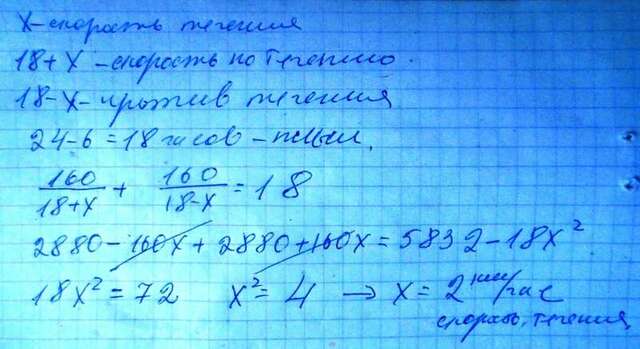 х-скорость течения
18+х-скорость по течению.
18-х-против течения
24-6=18 часов-плыл.
160/18+x + 160/18-x = 18
2880-160x+2880+160x=5832-18x²
18x²=72 x²=4 → x=2 км/час
скорость течения